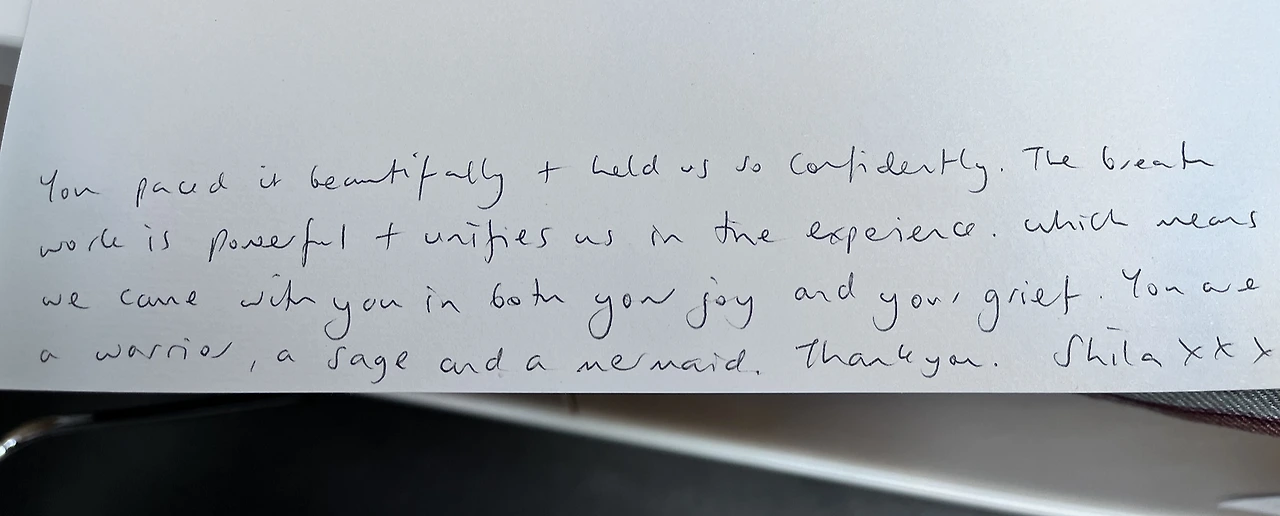 You paced it beautifully + held us so confidently. The breath
work is powerful + unifies us in the experience. which means
we came with you in both your joy and your grief. You are
a warrior, a sage and a mermaid. Thank you. Shila x x x